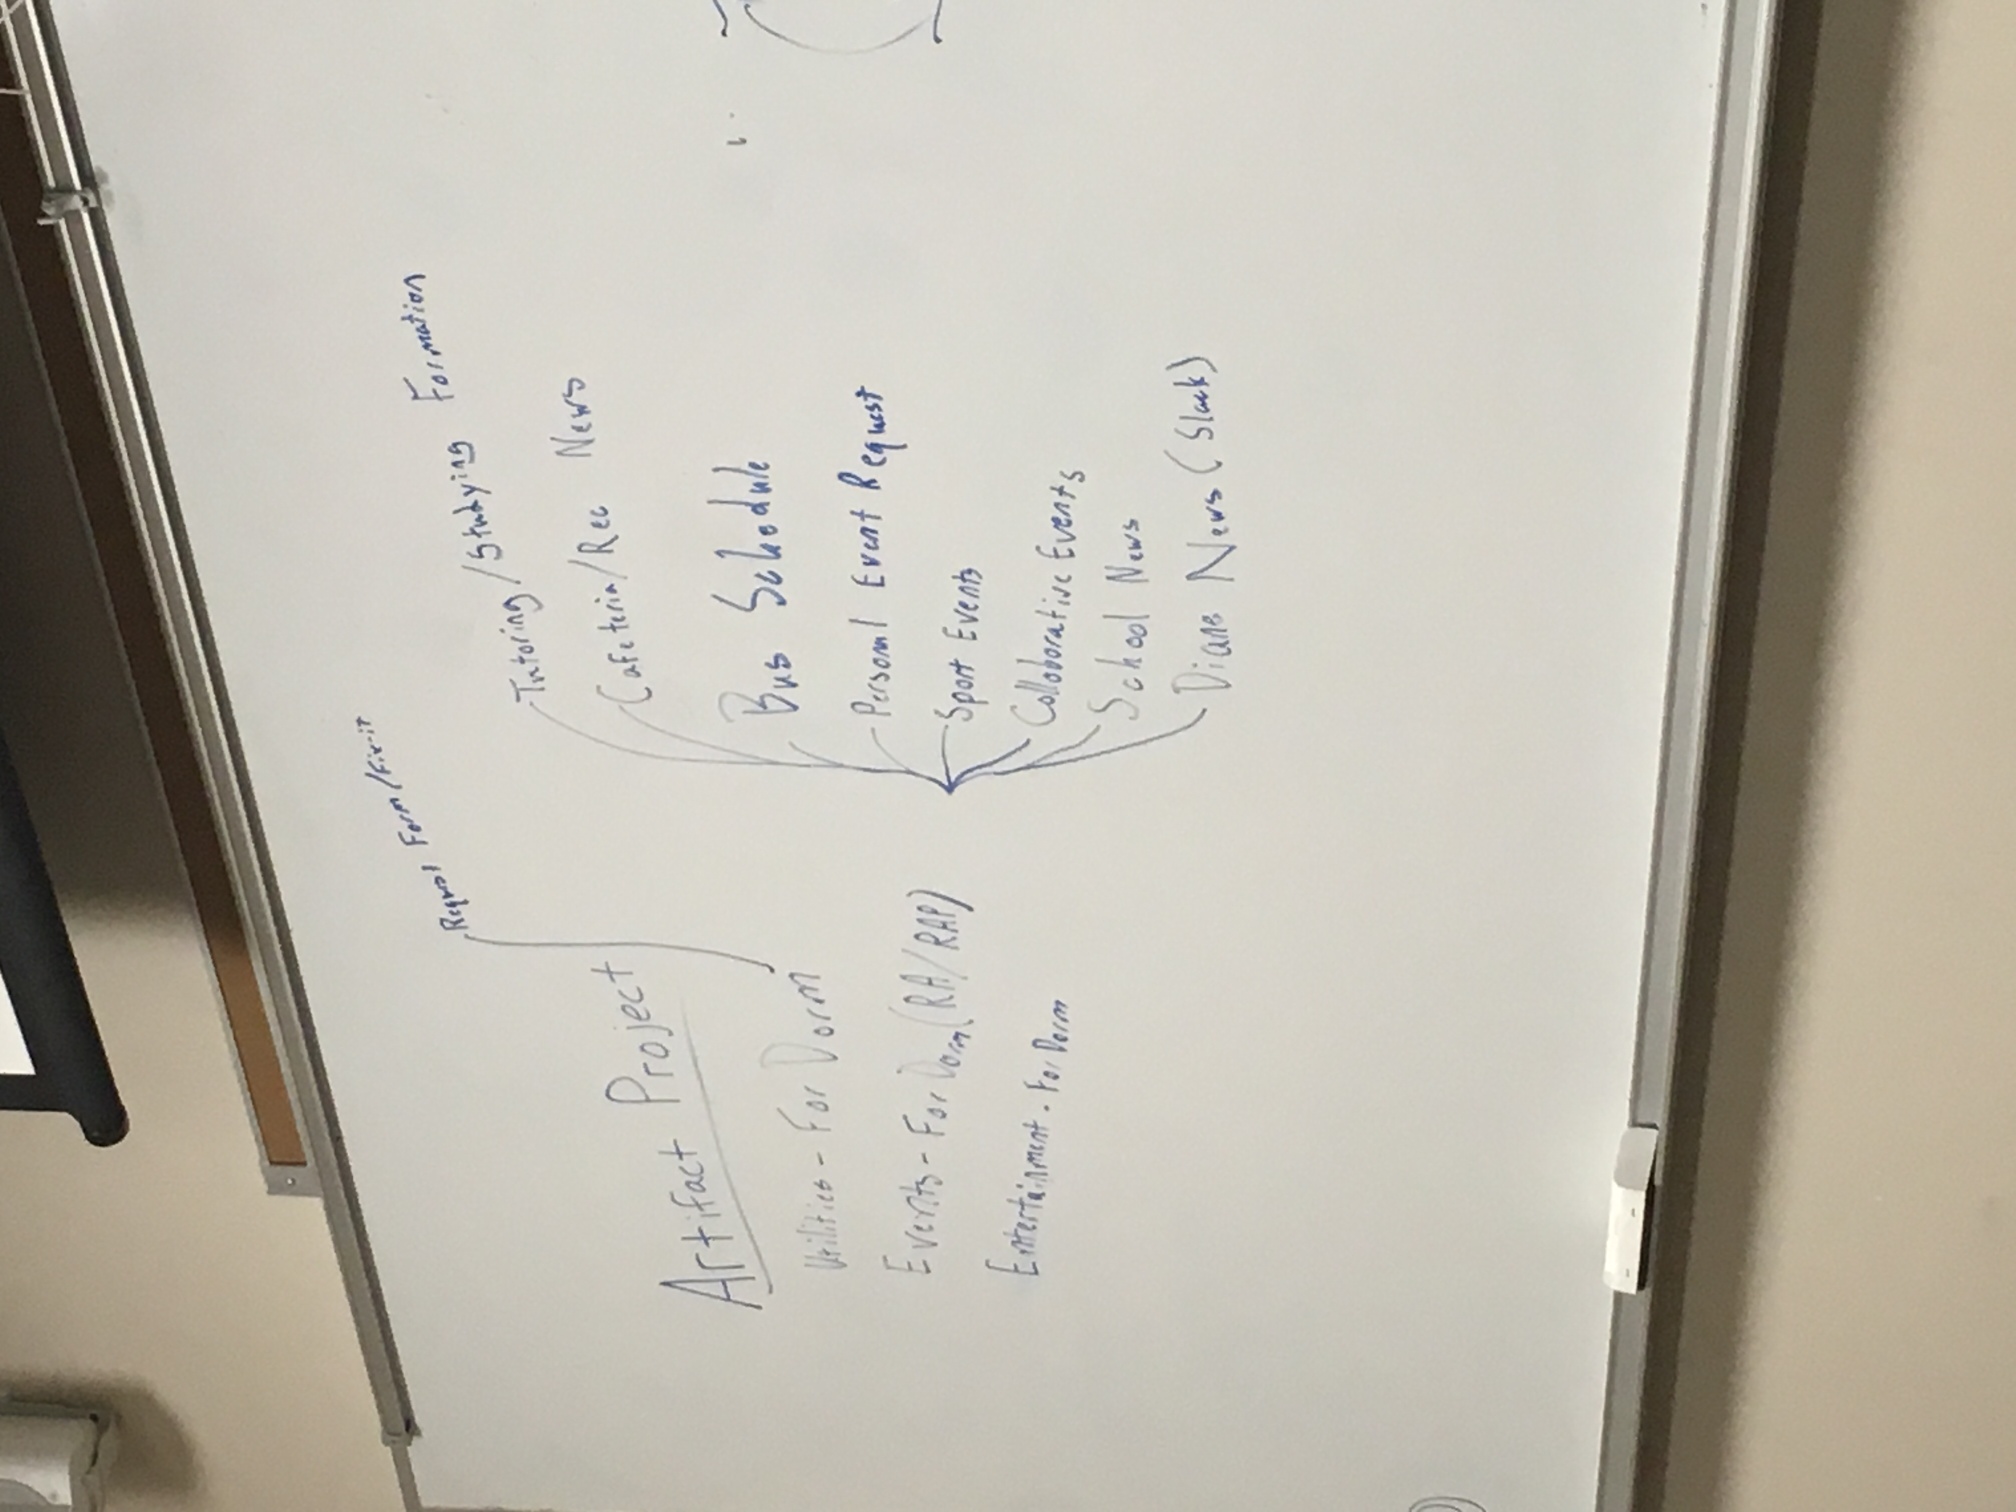 Request Form/Fix-it
Artifact Project
Utilities - For Dorm
Events - For Dorm (RA/RAP)
Entertainment - For Dorm
Tutoring/Studying Formation
Cafeteria/Rec News
Bus Schedule
Personal Event Request
Sport Events
Colloborative Events
School News
Diane News (Slack)